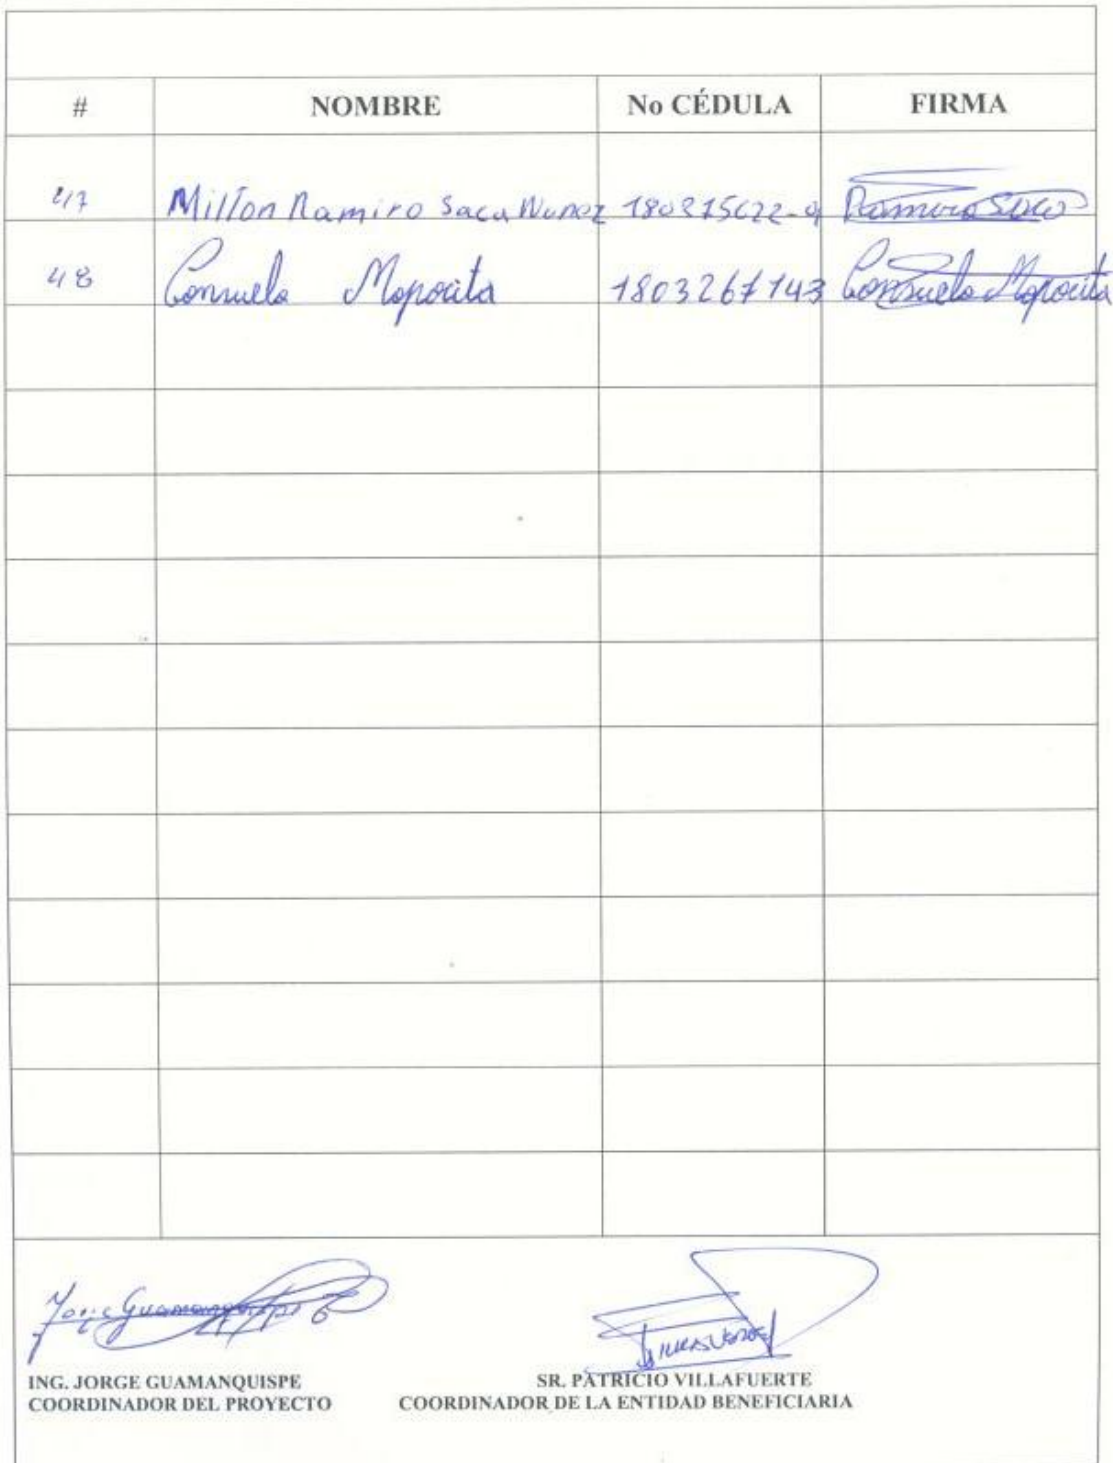 # NOMBRE No CÉDULA FIRMA
47 Milton Ramiro Saca Nunez 180275622-9 Ramiro Saca
48 Consuelo Moposita 1803267143 Consuelo Moposita
Jorge Guamanquispe
ING. JORGE GUAMANQUISPE SR. PATRICIO VILLAFUERTE
COORDINADOR DEL PROYECTO COORDINADOR DE LA ENTIDAD BENEFICIARIA